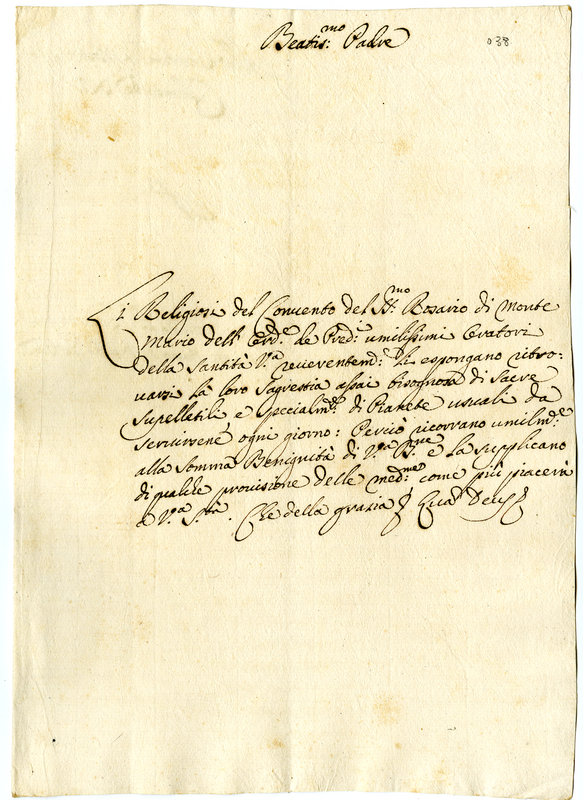 Beatis:mo Padre
038
Li Religiosi del Convento del SS:mo Rosario di Monte
Mario dell' Ord:e de Pred:i umilissimi Oratori
della Santità V:a reverentem:e Le espongano ritro-
varsi la loro Sagrestia assai bisognosa di Sacre
Supelletili, e specialm:e di Pianete usuali da
servirsene ogni giorno: Perciò ricorrano umilm:e
alla somma Benignità di V:a B:ne e la supplicano
di qualche provisione delle med:me come più piacerà
a V:a S:tà. Che della grazia Quā Deus